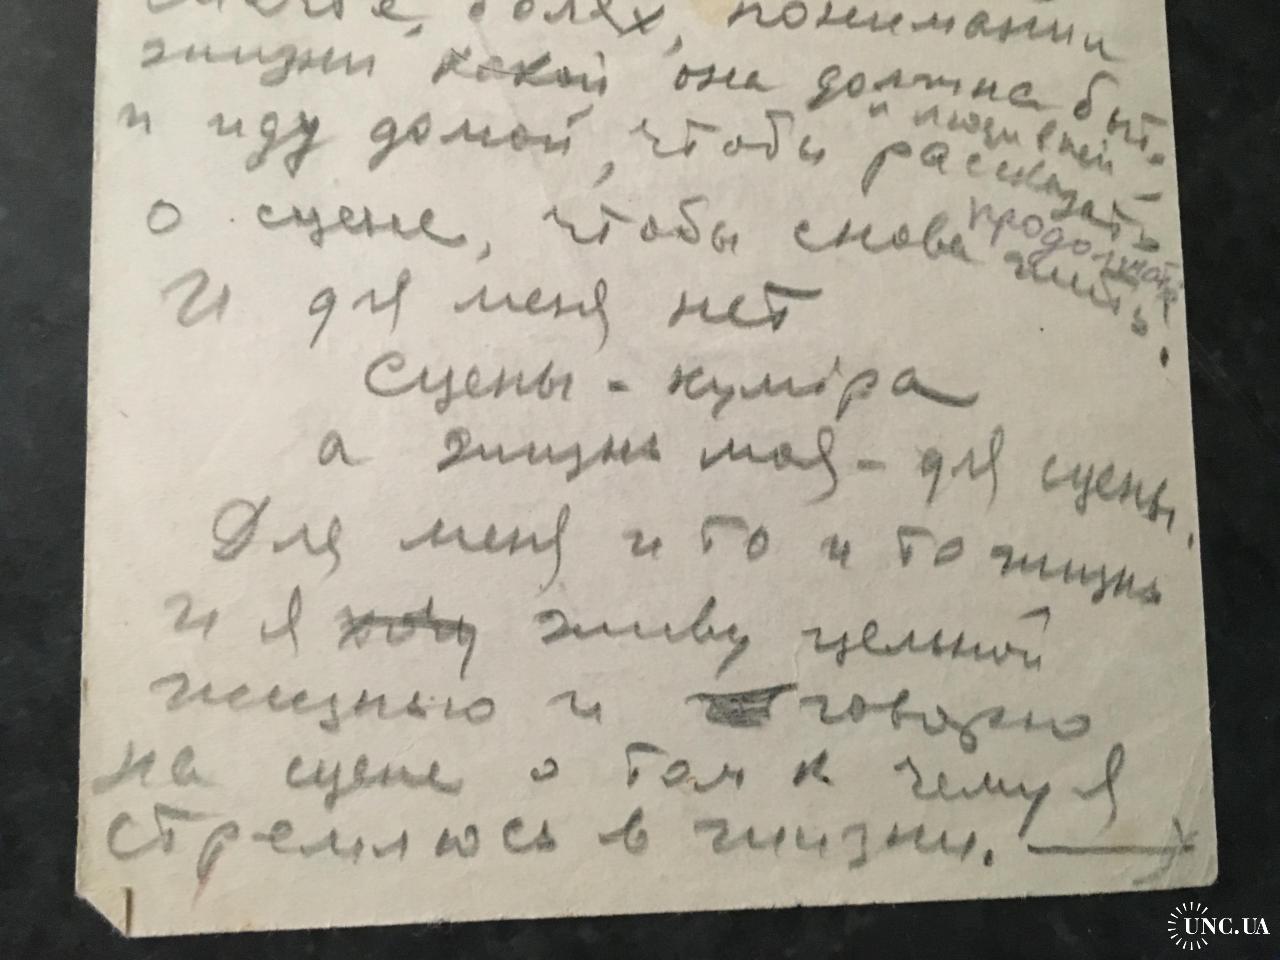 счастье, болях, понимании
жизни какой она должна быть
и людей ней
и иду домой, чтобы рассказать
продолжать
о сцене, чтобы снова жить.
И для меня нет
Сцены - куміра
а жизнь моя - для сцены.
Для меня и то и то жизнь
и я хочу живу цельной
жизнью и говорю
на сцене о том к чему я
стремлюсь в жизни.
UNC.UA